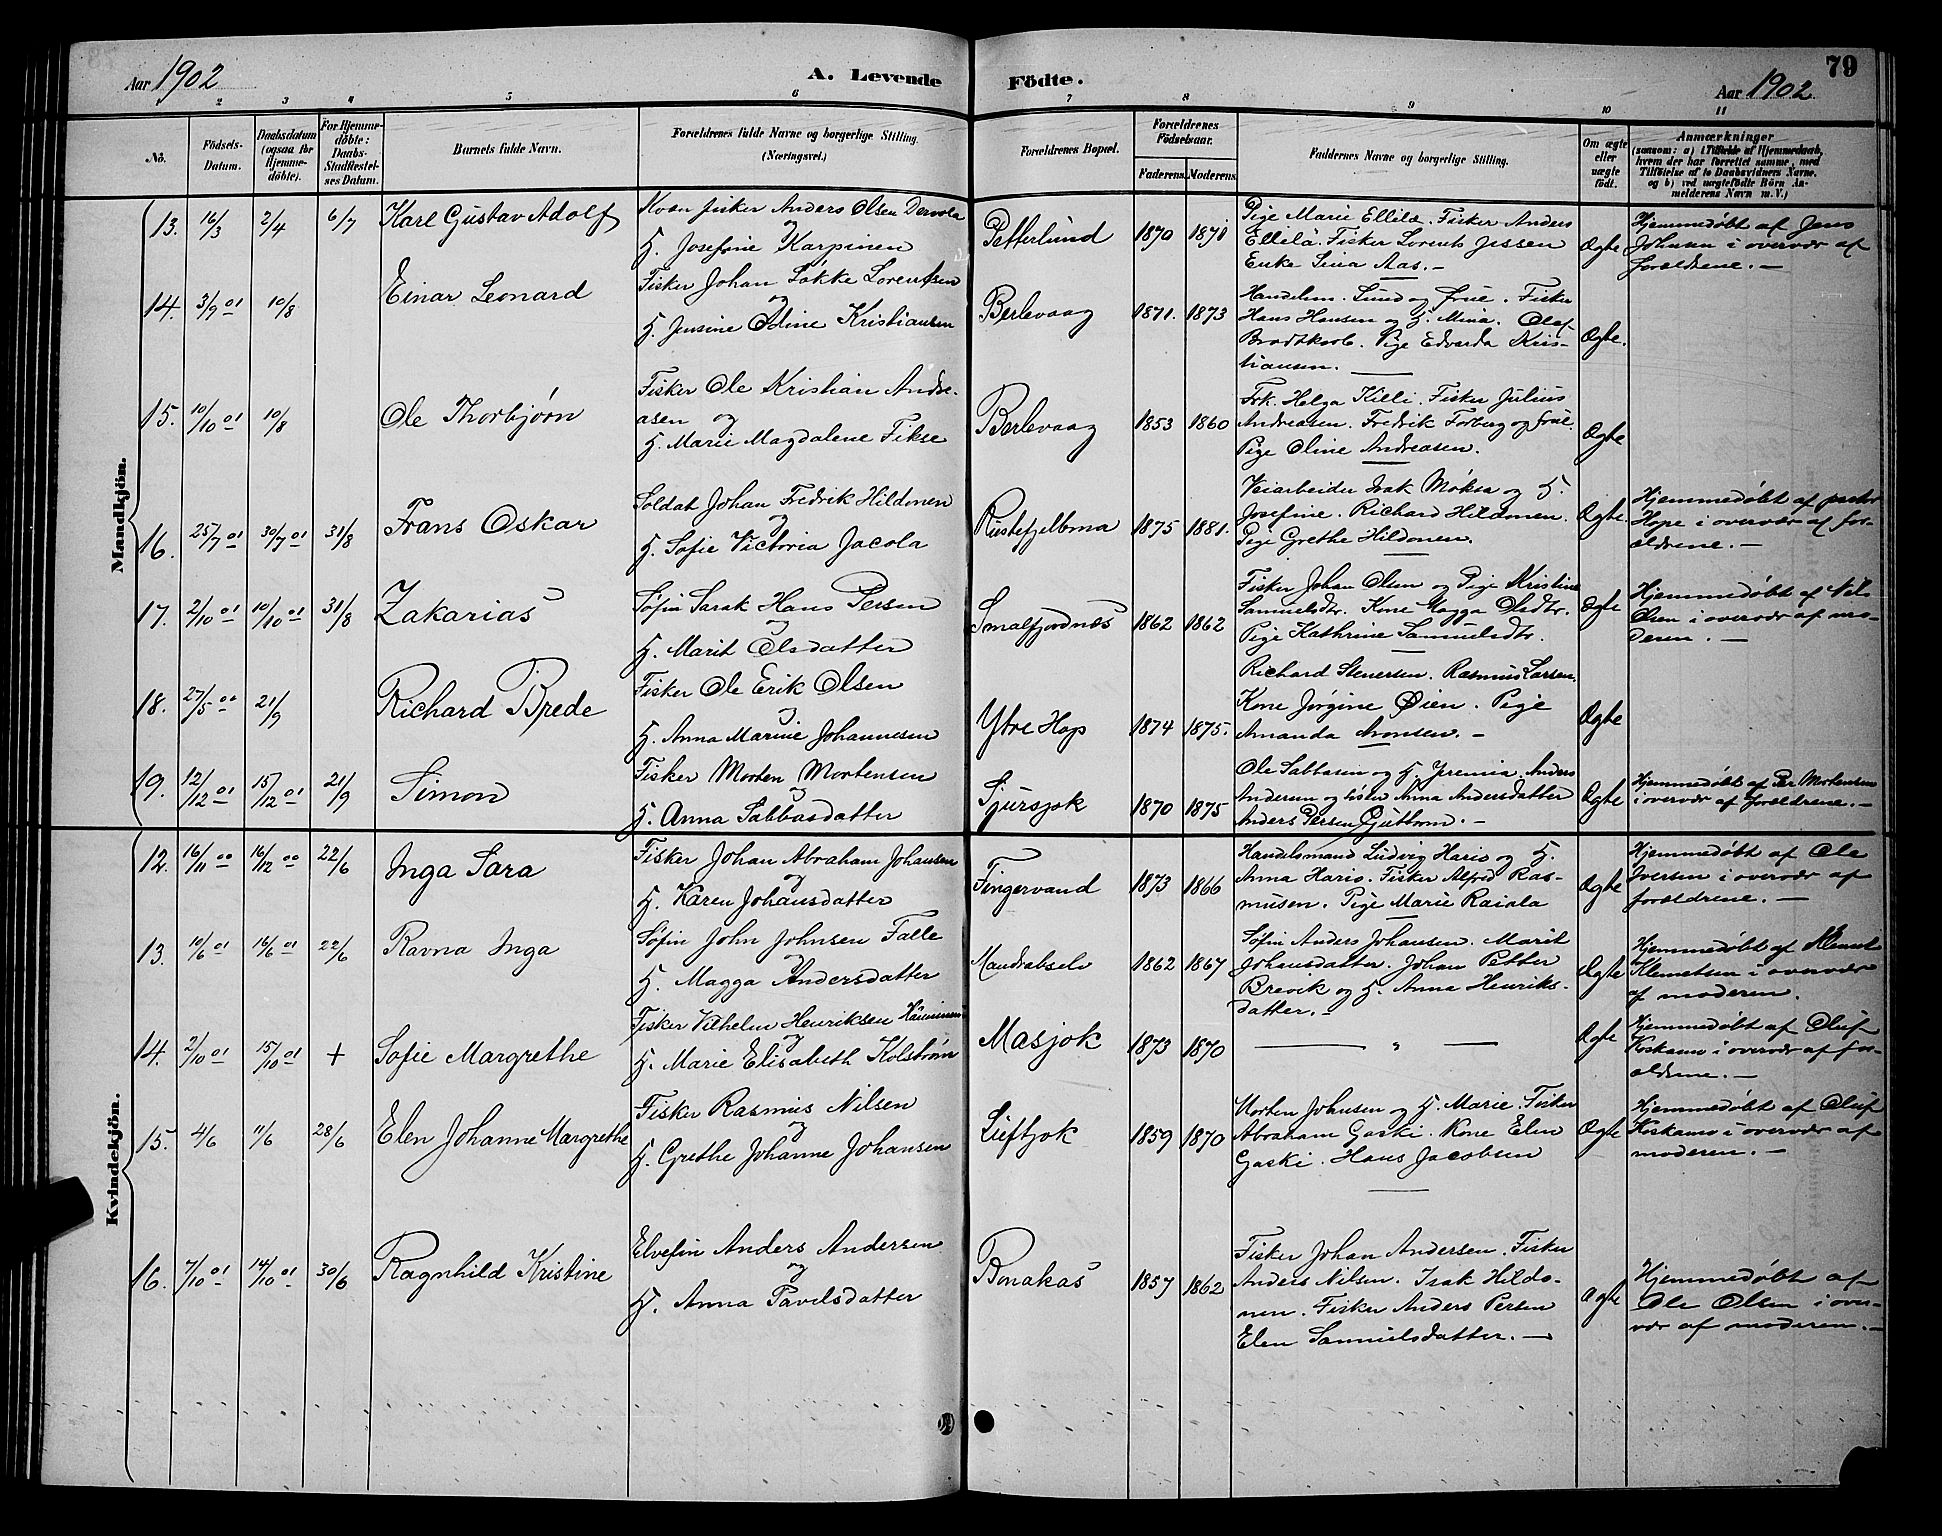 Aar 1902
A. Levende
Födte.
Aar 1902
79
2 3 4 5 6 7 8 9 10 11
Nö.
Födsels-Datum.
Daabsdatum (ogsaa for Hjemme-döbte).
For Hjemme-döbte: Daabs-Stadfæstel-ses Datum.
Barnets fulde Navn.
Forældrenes fulde Navne og borgerlige Stilling.
(Næringsvei.)
Forældrenes Bopæl.
Forældrenes Födselsaar.
Faderens. Moderens.
Faddernes Navne og borgerlige Stilling.
Om ægte eller uægte født.
Anmærkninger
(saasom: a) i Tilfælde af Hjemmedaab,
hvem der har forrettet samme, med
Tilföielse af to Daabsvidners Navne.
og b) ved uægtefödte Börn An-
melderens Navn m. V.)
Mandkjön.
13. 16/3 2/4 6/7 Karl Gustav Adolf
Kvæn fisker Anders Olsen Dervola
og
H. Josefine Karpinen
Petterlund 1870 1871
Pige Marie Ellilä. Fisker Anders
Ellilä. Fisker Lorents Jessen
Enke Lina Aas. —
Ægte
Hjemmedøbt af Jens
Johnsen i overvær af
forældrene. —
14. 3/9 01 10/8 Einar Leonard
Fisker Johan Løkke Lorentsen
og
H. Jensine Odine Kristiansen
Berlevaag 1871. 1873
Handelsm. Lund og frue. Fisker
Hans Hansen og H. Mina. Olaf
Brodtkorb. Pige Edvarda Kris-
tiansen.
Ægte.
15. 10/10 01 10/8 Ole Thorbjørn
Fisker Ole Kristian Andre-
asen og
H. Marie Magdalene Fikse
Berlevaag 1853 1860
Frk. Helga Killi. Fisker Julius
Andreasen. Fredrik Forberg og frue.
Pige Oline Andreasen.
Ægte
16. 25/7 01 30/7 01 31/8 Frans Oskar
Soldat Johan Fredrik Hildonen
og
H. Sofie Victoria Jacola
Rustefjelbma 1875 1881.
Veiarbeider Isak Møksa og H.
Josefine. Richard Hildonen.
Pige Grethe Hildonen.
Ægte
Hjemmedøbt af pastor
Hope i overvær af for-
ældrene. —
17. 2/10 01 10/10 01 31/8 Zakarias
Søfin Sarak Hans Persen
og
H. Marit Olsdatter
Smalfjordnæs 1862 1862
Fisker Johan Olsen og Pige Kristine
Samuelsdtr. Kone Magga Olsdtr.
Pige Kathrine Samuelsdtr.
Ægte
Hjemmedøbt af Nils
Olsen i overvær af mo-
deren. —
18. 27/5 00 21/9 Richard Brede
Fisker Ole Erik Olsen
og
H. Anna Marine Johannesen
Ytre Hop 1874 1875.
Richard Stenersen. Rasmus Larsen.
Kone Jørgine Øien. Pige
Amanda Aronsen. —
Ægte
19. 12/12 01 15/12 01 21/9 Simon
Fisker Morten Mortensen
og
H. Anna Sabbasdatter
Sjursjok 1870 1875
Ole Sabbasen og H. Anders
Andersen og søster Anna Andersdatter
Anders Persen —
Ægte
Hjemmedøbt af Per Mortensen
i overvær af forældrene. —
Kvindekjön.
12. 16/11 00 16/12 00 22/6 Inga Sara
Fisker Johan Abraham Johansen
og
H. Karen Johansdatter
Fingervand 1873 1866
Handelsmand Ludvig Haris og H.
Anna Haris. Fisker Alfred Ras-
musen. Pige Marie Raiala
Ægte
Hjemmedøbt af Ole
Iversen i overvær af
forældrene. —
13. 10/6 01 16/6 01 22/6 Ravna Inga
Søfin John Johnsen Falle
og
H. Magga Andersdatter
1862 1867
Søfin Anders Johansen. Marit
Johansdatter. Johan Petter
Brevik og H. Anna Henriks-
datter. —
Ægte
Hjemmedøbt af Klemet
Klemetsen i overvær
af moderen.
14. 2/10 01 15/10 01 + Sofie Margrethe
Fisker Vilhelm Henriksen
og
H. Marie Elisabeth Kolstrøm
Masjok 1873 1870
— " —
Ægte
Hjemmedøbt af Oluf
Koskamo i overvær af for-
ældrene. —
15. 4/6 11/6 28/6 Elen Johanne Margrethe
Fisker Rasmus Nilsen
og
H. Grethe Johanne Johansen
Lieftjok 1859 1870
Morten Johnsen og H. Marie. Fisker
Abraham Gaski. Kone Elen
Gaski. Hans Jacobsen
Ægte
Hjemmedøbt af Oluf
Koskamo i overvær af
moderen. —
16. 7/10 01 14/10 01 30/6 Ragnhild Kristine
Elvefin Anders Andersen
og
H. Anna Pavelsdatter
Bonakas 1857 1862
Fisker Johan Andersen. Fisker
Anders Nilsen. Isak Hildo-
nen. Fisker Anders Persen
Elen Samuelsdatter. —
Ægte
Hjemmedøbt af
Ole Olsen i over-
vær af moderen. —